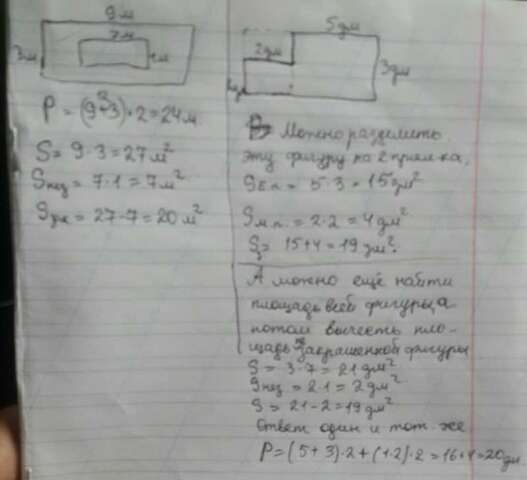 9 м
7 м
3 м
1 м
P = (9+3)·2=24 м
S = 9·3=27 м²
Sнез = 7·1=7 м²
= 27-7=20 м²
5 дм
2 дм
3 дм
Можно разделить
эту фигуру на 2 прям-ка,
Sб.п. = 5·3=15 дм²
Sм.п. = 2·2=4 дм²
S = 15+4=19 дм².
А можно ещё найти
площадь всей фигуры, а
потом вычесть пло-
щадь закрашенной фигуры
S = 3·7=21 дм²
Sнез = 2·1=2 дм²
S = 21-2=19 дм²
Ответ один и тот же
P=(5+3)·2+(1·2)·2=16+4=20 дм